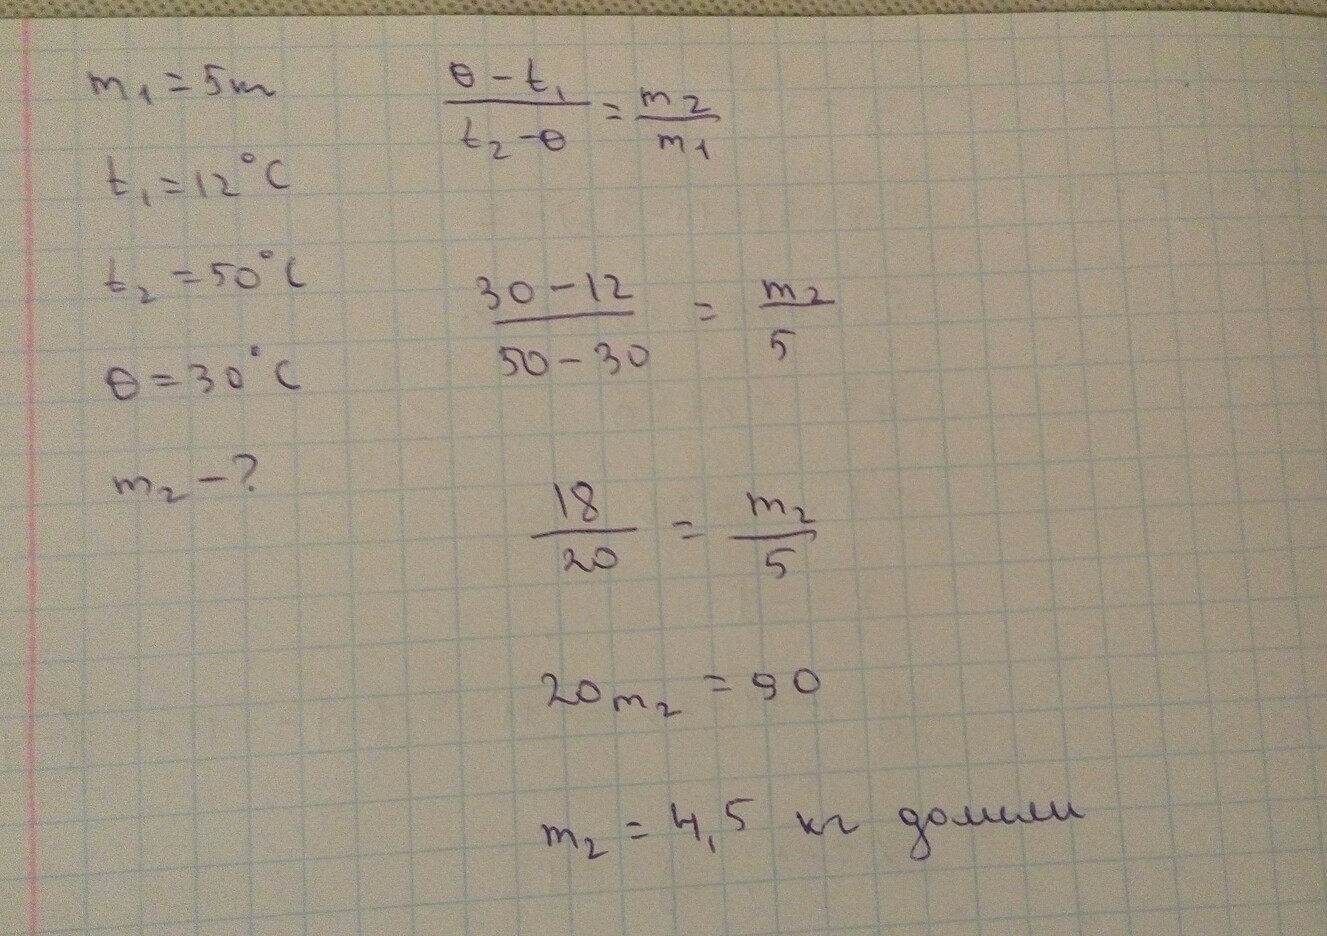 m₁ = 5 кг
t₁ = 12°C
t₂ = 50°C
θ = 30°C
m₂ - ?
θ - t₁ / t₂ - θ = m₂ / m₁
30 - 12 / 50 - 30 = m₂ / 5
18 / 20 = m₂ / 5
20 m₂ = 90
m₂ = 4,5 кг долили